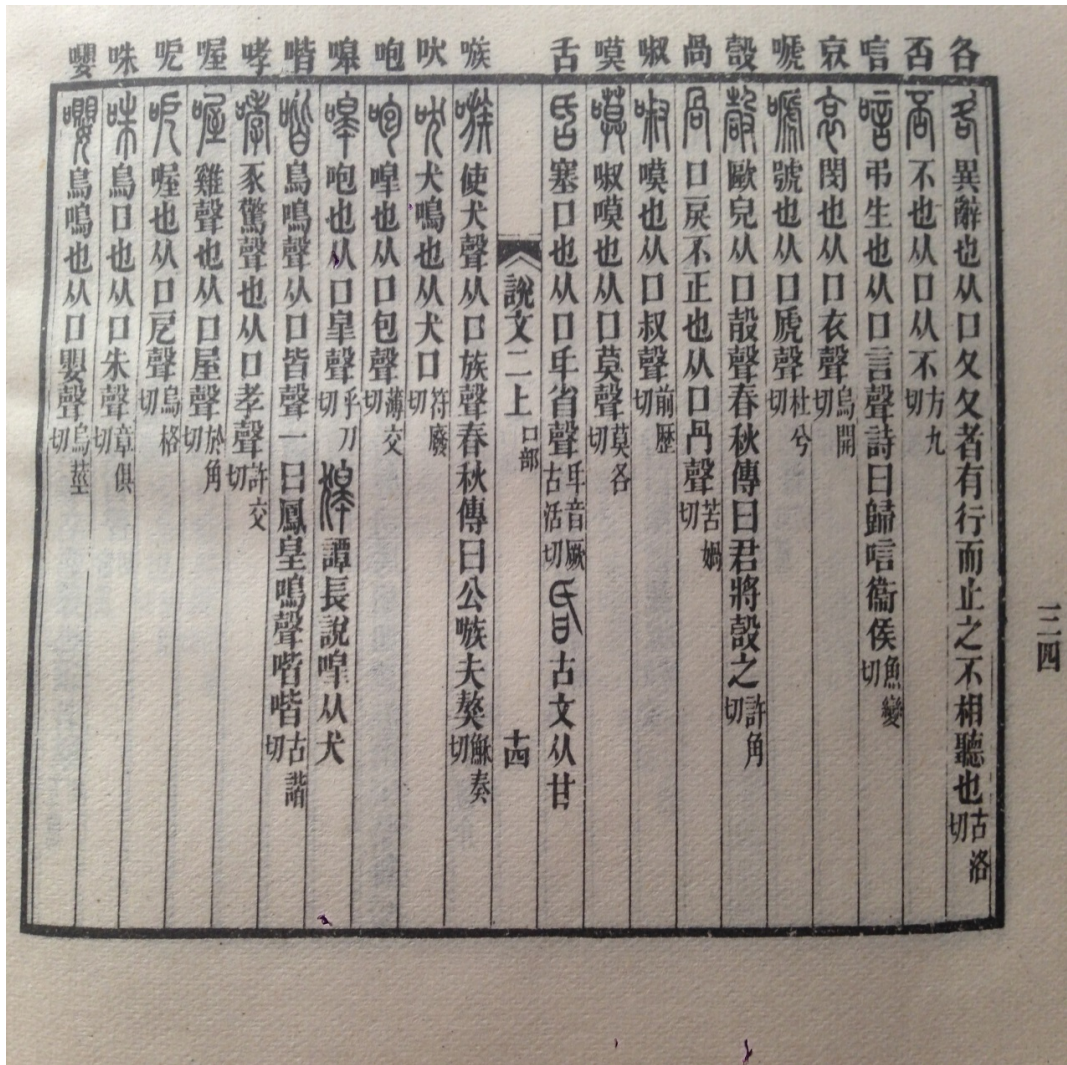 三四
各 否 唁 哀 嗁 㱿 咼 㖩 嗼 𠯑 嗾 吠 咆 嘷 喈 哮 喔 呝 咮 嚶
異辭也从口夂夂者有行而止之不相聽也古洛切
不也从口从不方九切
弔生也从口言聲詩曰歸唁衞侯魚變切
閔也从口衣聲烏開切
號也从口虒聲杜兮切
歐皃从口㱿聲春秋傳曰君將㱿之許角切
口戾不正也从口冎聲苦媧切
嗼也从口叔聲前歷切
㖩嗼也从口莫聲莫各切
塞口也从口𠂈省聲𠂈音厥古活切 古文从甘
說文二上 口部 十四
使犬聲从口族聲春秋傳曰公嗾夫獒穌奏切
犬鳴也从犬口符廢切
嘷也从口包聲薄交切
咆也从口皋聲乎刀切 譚長說嘷从犬
鳥鳴聲从口皆聲一曰鳳皇鳴聲喈喈古諧切
豕驚聲也从口孝聲許交切
雞聲也从口屋聲於角切
喔也从口戹聲烏格切
鳥口也从口朱聲章俱切
鳥鳴也从口嬰聲烏莖切